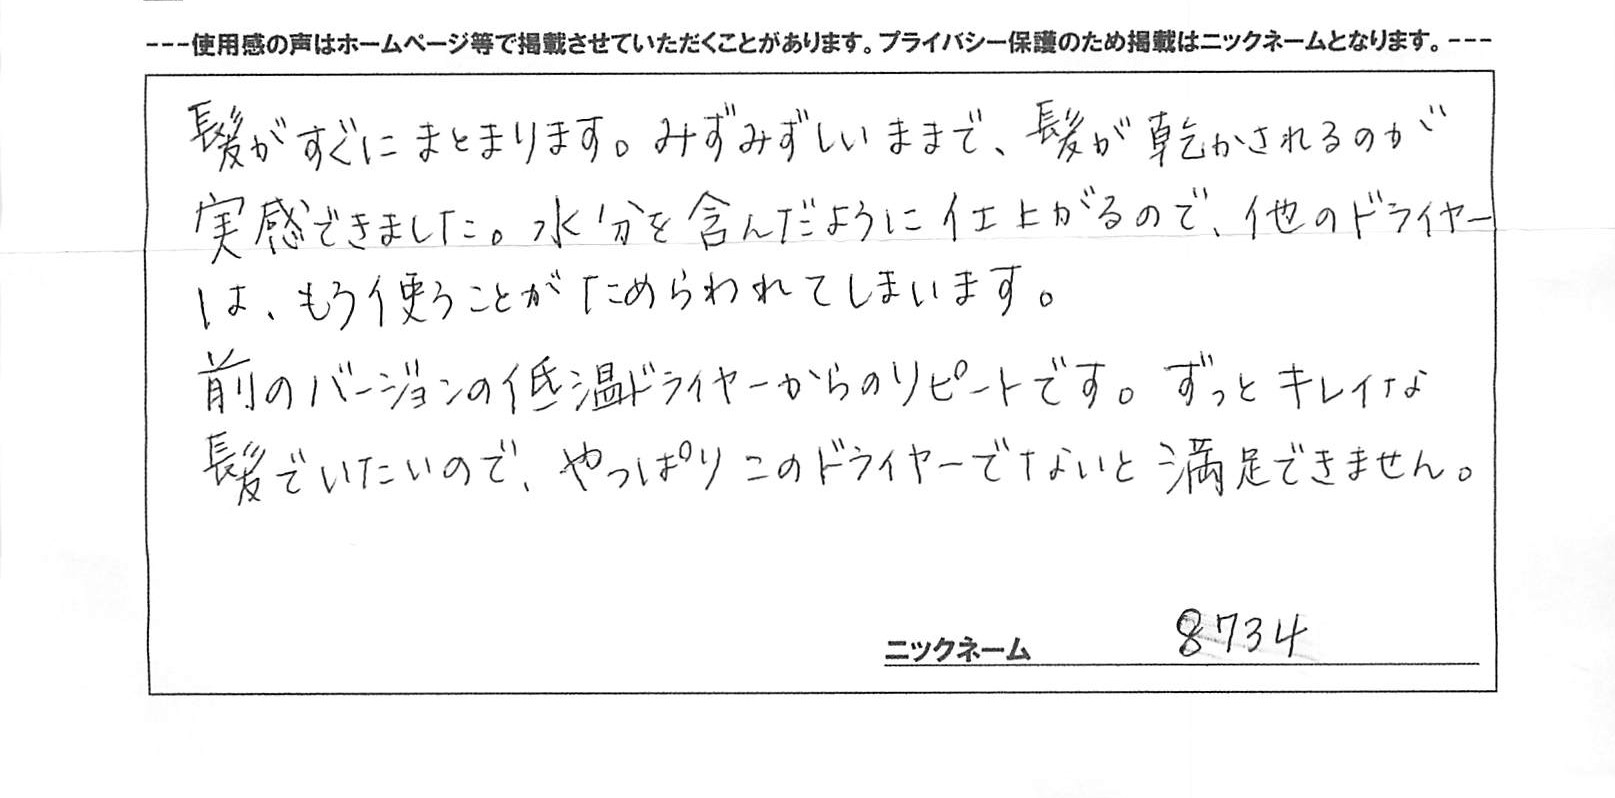 ---使用感の声はホームページ等で掲載させていただくことがあります。プライバシー保護のため掲載はニックネームとなります。---
髪がすぐにまとまります。みずみずしいままで、髪が乾かされるのが
実感できました。水分を含んだように仕上がるので、他のドライヤー
は、もう使うことがためらわれてしまいます。
前のバージョンの低温ドライヤーからのリピートです。ずっとキレイな
髪でいたいので、やっぱりこのドライヤーでないと満足できません。
ニックネーム 8734